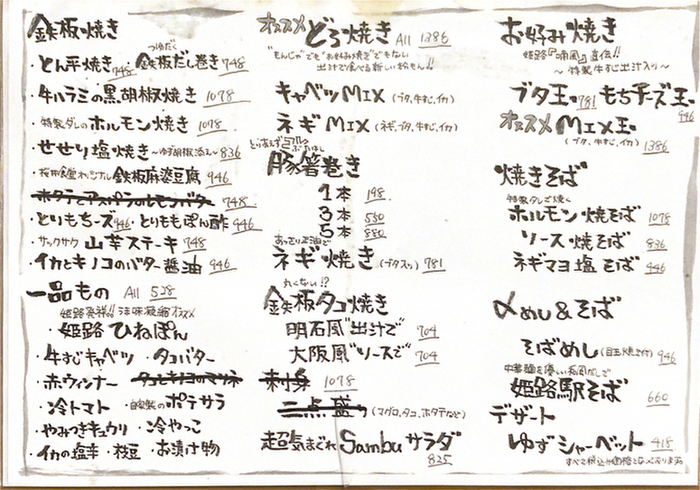 鉄板焼き
・とん平焼き 748 つゆだく 鉄板だし巻き 748
・牛ハラミの黒胡椒焼き 1078
・特製ダレのホルモン焼き 1078
・せせり塩焼き 〜ゆず胡椒添え〜 836
オリジナル 鉄板麻婆豆腐 946
ホタテとアスパラのレモンバター 748
・とりもちーズ 946 ・とりももぽん酢 946
・サックサク 山芋ステーキ 748
・イカとキノコのバター醤油 946
一品もの All 528
姫路発祥!! 珍味 オススメ
・姫路ひねぽん
・牛すじキャベツ ・タコバター
・赤ウィンナー ・タコとキノコのマリネ
・冷トマト ・自家製のポテサラ
・やみつきキュウリ ・冷やっこ
・イカの塩辛 ・枝豆 ・お漬け物
オススメ どろ焼き All 1386
"もんじゃ"でも"お好み焼き"でもない
出汁で食べる新しい粉もん!!
キャベツMIX (ブタ、牛すじ、イカ)
ネギMIX (ネギ、ブタ、牛すじ、イカ)
とりあえず
豚箸巻き
1本 198
3本 550
5本 880
あっさり醤油で
ネギ焼き (ブタ入り) 781
丸くない!?
鉄板タコ焼き
明石風"出汁で 704
大阪風"ソースで 704
刺身 1078
二点盛 (マグロ、タコ、ホタテなど)
超気まぐれ Sambuサラダ 825
お好み焼き
姫路『喃風』直伝!!
〜特製牛すじ出汁入り〜
ブタ玉 781 もちチーズ玉 946
オススメ MIX玉 1386
(ブタ、牛すじ、イカ)
焼きそば
特製ダレで焼く
ホルモン焼そば 1078
ソース焼そば 836
ネギマヨ塩そば 946
〆めし&そば
そばめし (目玉焼付) 946
中華麺を優しい和風だしで
姫路駅そば 660
デザート
ゆずシャーベット 418
すべて税込み価格となっております。